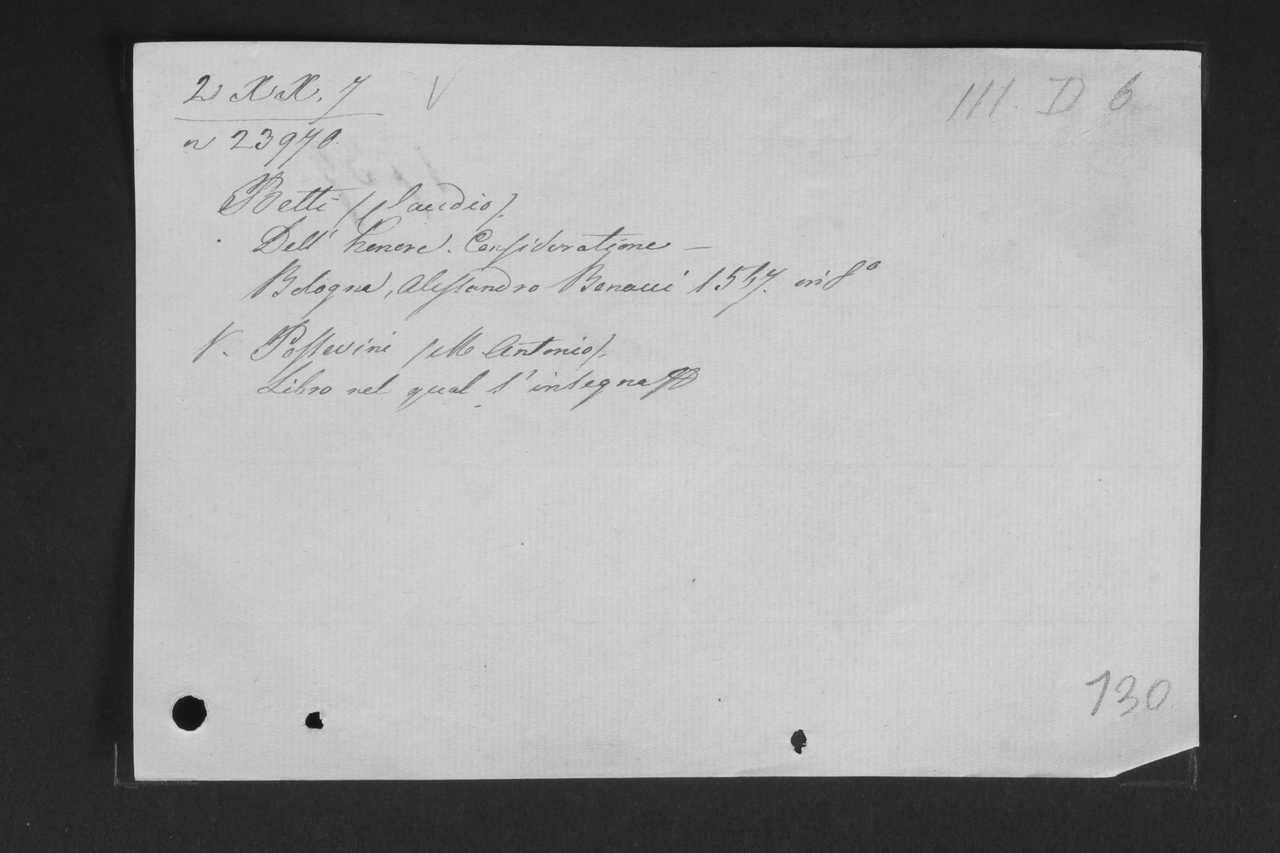 2 X X. 7 V III. D 6
n 23970.
Betti (Claudio).
Dell' honore. Consideratione —
Bologna, Alessandro Benacci 1557. in 8°
V. Possevini (M Antonio).
Libro nel qual s'insegna
130